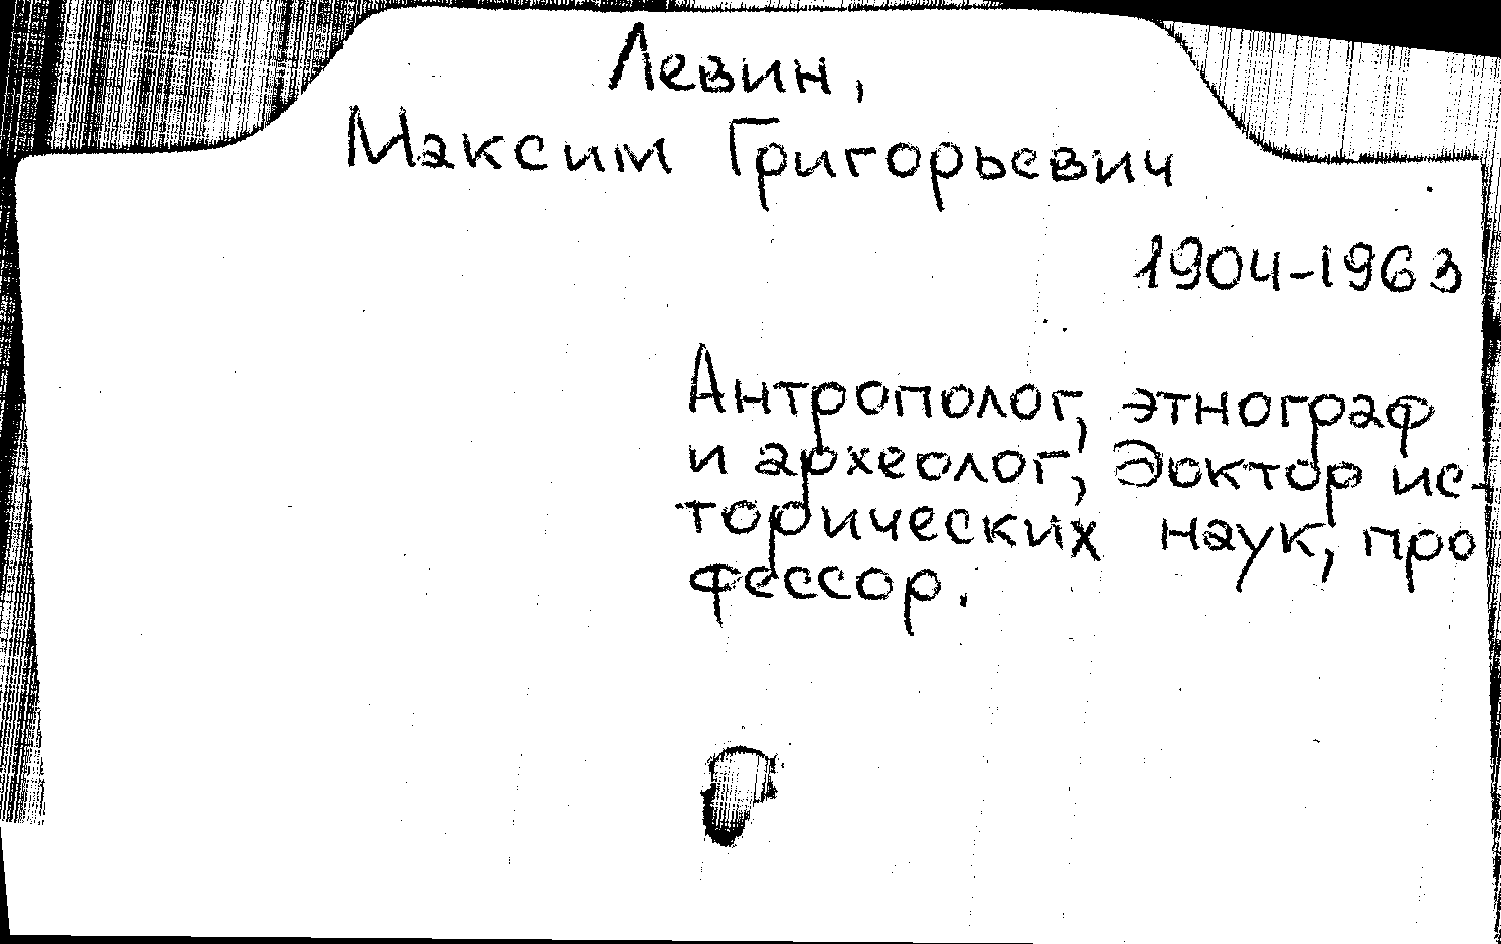 Левин,
Максим Григорьевич
1904-1963
Антрополог, этнограф
и археолог, доктор ис-
торических наук, про
фессор.